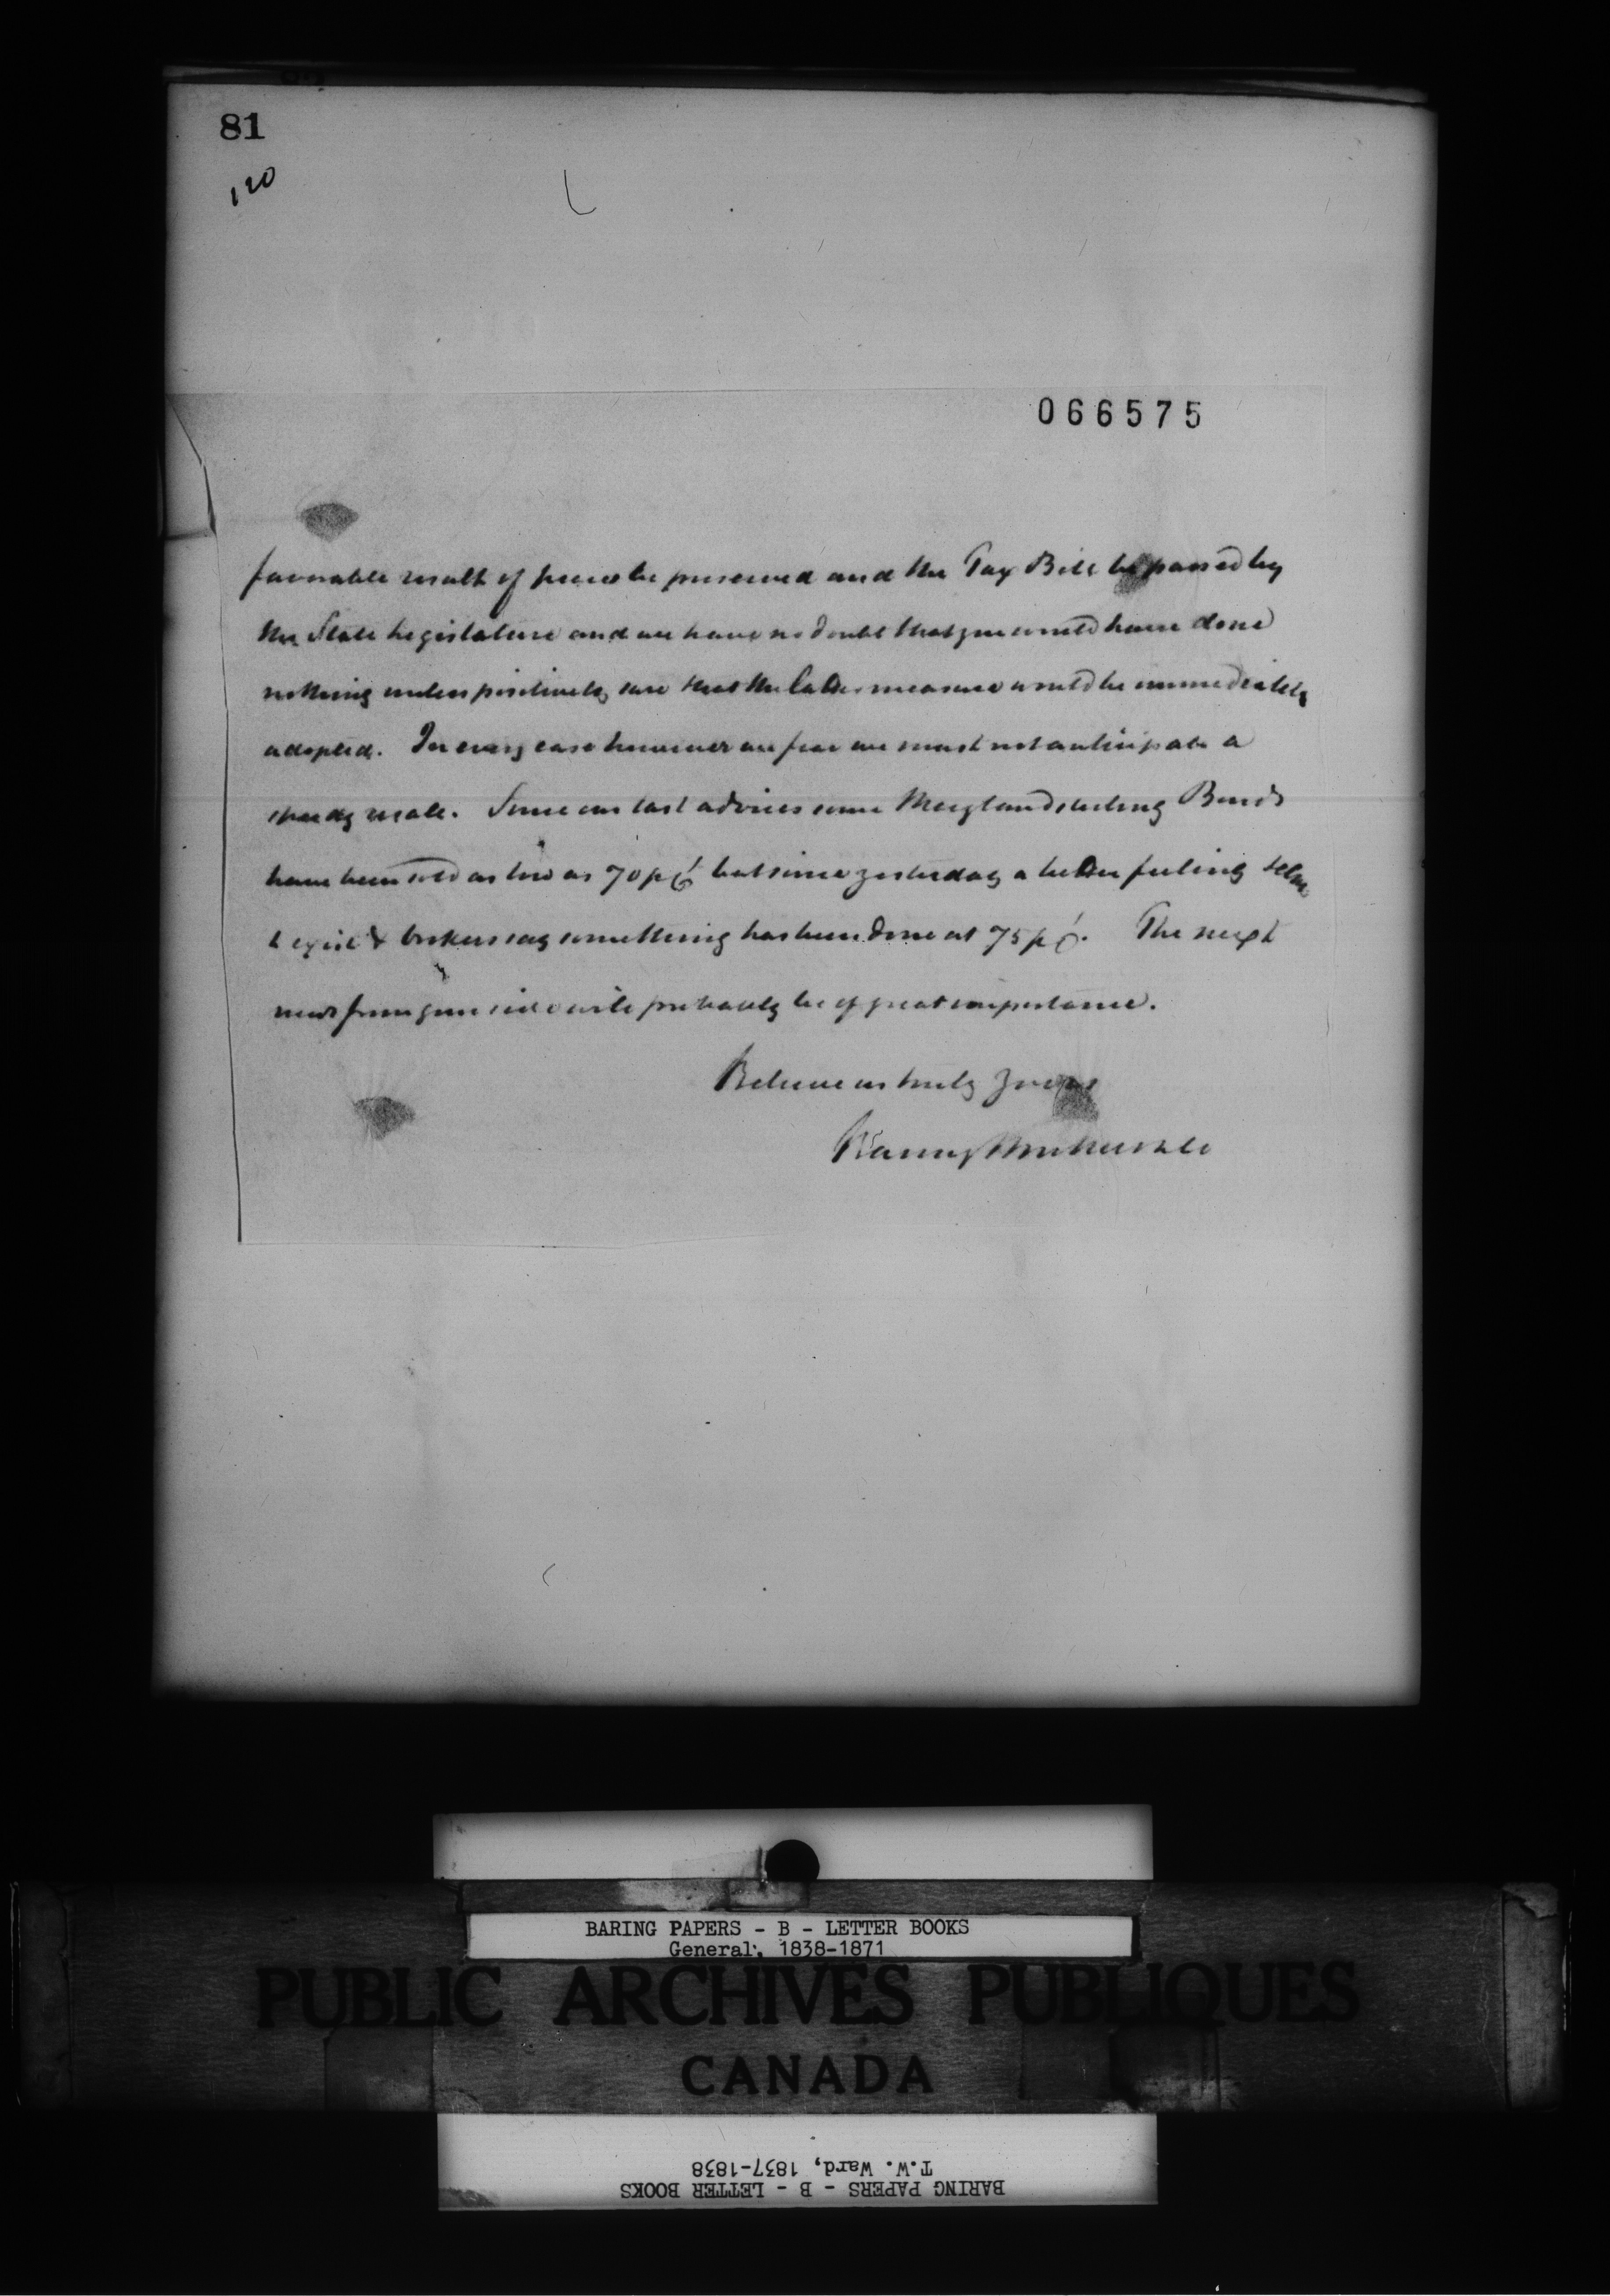 81
120
066575
favorable result if peace be preserved and the Tax Bill be passed by
the State Legislature and we have no doubt that you would have done
nothing unless positively sure that the latter measure would be immediately
adopted. In every case however we fear we must not anticipate a
speedy resale. Since our last advices some Maryland sterling Bonds
have been sold as low as 70 p Ct but since yesterday a better feeling seems
to exist & brokers say something has been done at 75 p Ct. The next
news from your side will probably be of great importance.
Believe us truly Yours
Baring Brothers & Co
BARING PAPERS - B - LETTER BOOKS
General, 1838-1871
PUBLIC ARCHIVES PUBLIQUES
CANADA
BARING PAPERS - B - LETTER BOOKS
T.W. Ward, 1837-1838